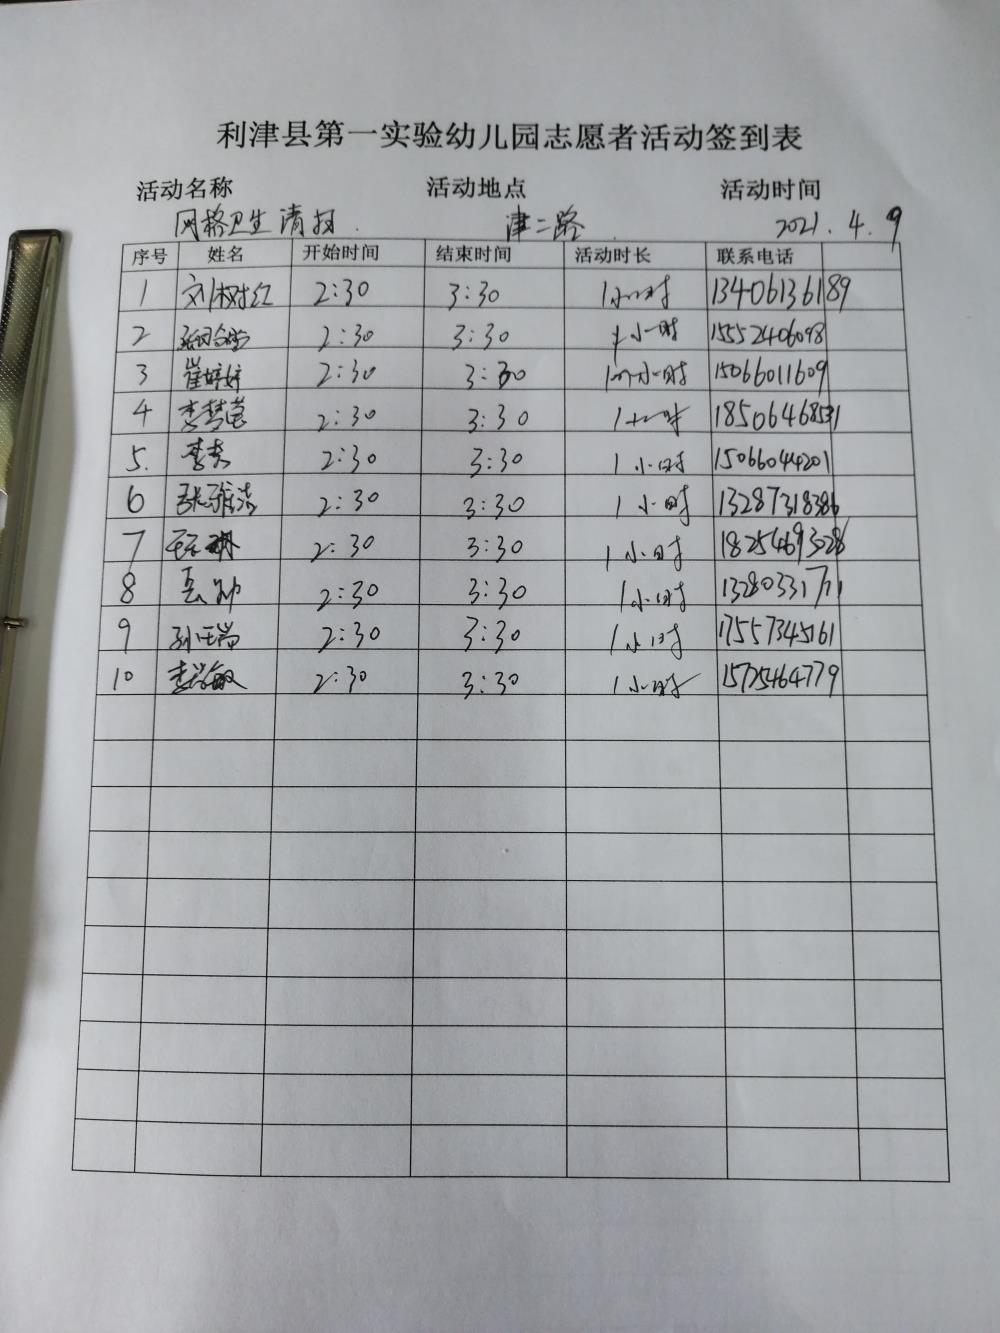 利津县第一实验幼儿园志愿者活动签到表
活动名称 活动地点 活动时间
网格卫生清扫 津二路 2021.4.9
序号 姓名 开始时间 结束时间 活动时长 联系电话
1 刘树红 2:30 3:30 1小时 13406136189
2 2:30 3:30 1小时 15552406098
3 崔婷婷 2:30 3:30 1小时 15066011609
4 李梦莹 2:30 3:30 1小时 18506468531
5. 2:30 3:30 1小时 15066044201
6 张雅洁 2:30 3:30 1小时 13287318386
7 2:30 3:30 1小时 18254693028
8 2:30 3:30 1小时 13280331771
9 孙瑞 2:30 3:30 1小时 17557345161
10 2:30 3:30 1小时 15725464779